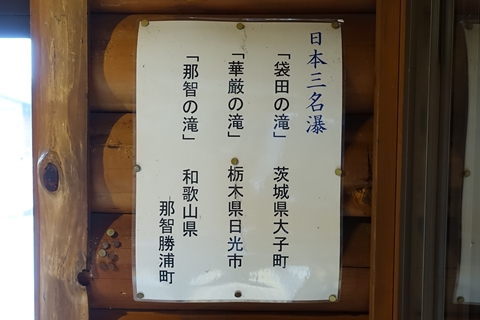 日本三名瀑
「袋田の滝」 茨城県大子町
「華厳の滝」 栃木県日光市
「那智の滝」 和歌山県
那智勝浦町